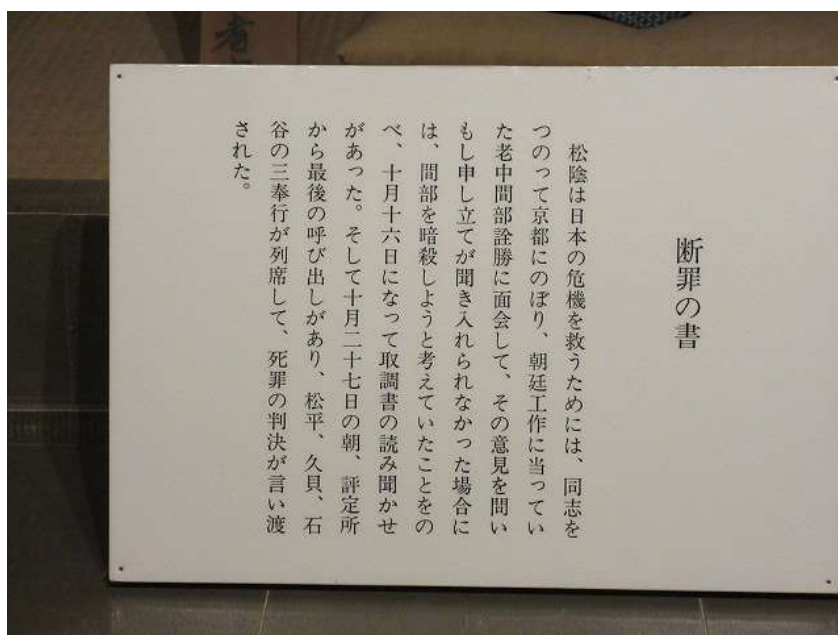 断罪の書
松陰は日本の危機を救うためには、同志を
つのって京都にのぼり、朝廷工作に当ってい
た老中間部詮勝に面会して、その意見を問い
もし申し立てが聞き入れられなかった場合に
は、間部を暗殺しようと考えていたことをの
べ、十月十六日になって取調書の読み聞かせ
があった。そして十月二十七日の朝、評定所
から最後の呼び出しがあり、松平、久貝、石
谷の三奉行が列席して、死罪の判決が言い渡
された。